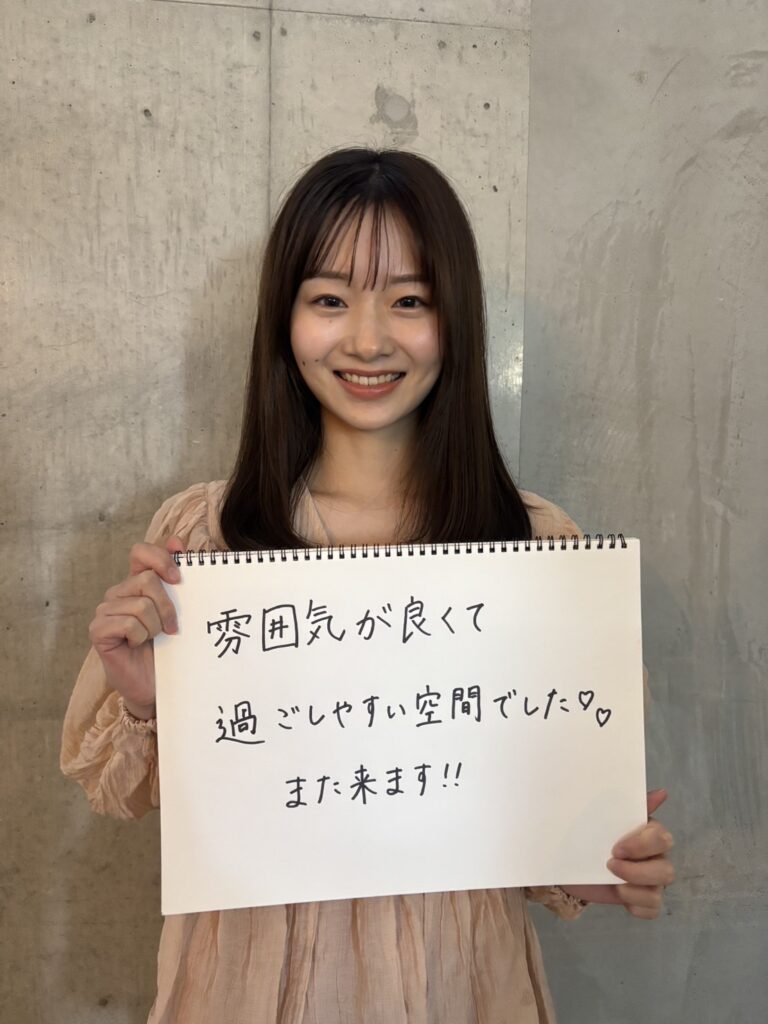 雰囲気が良くて
過ごしやすい空間でした♡♡
また来ます!!